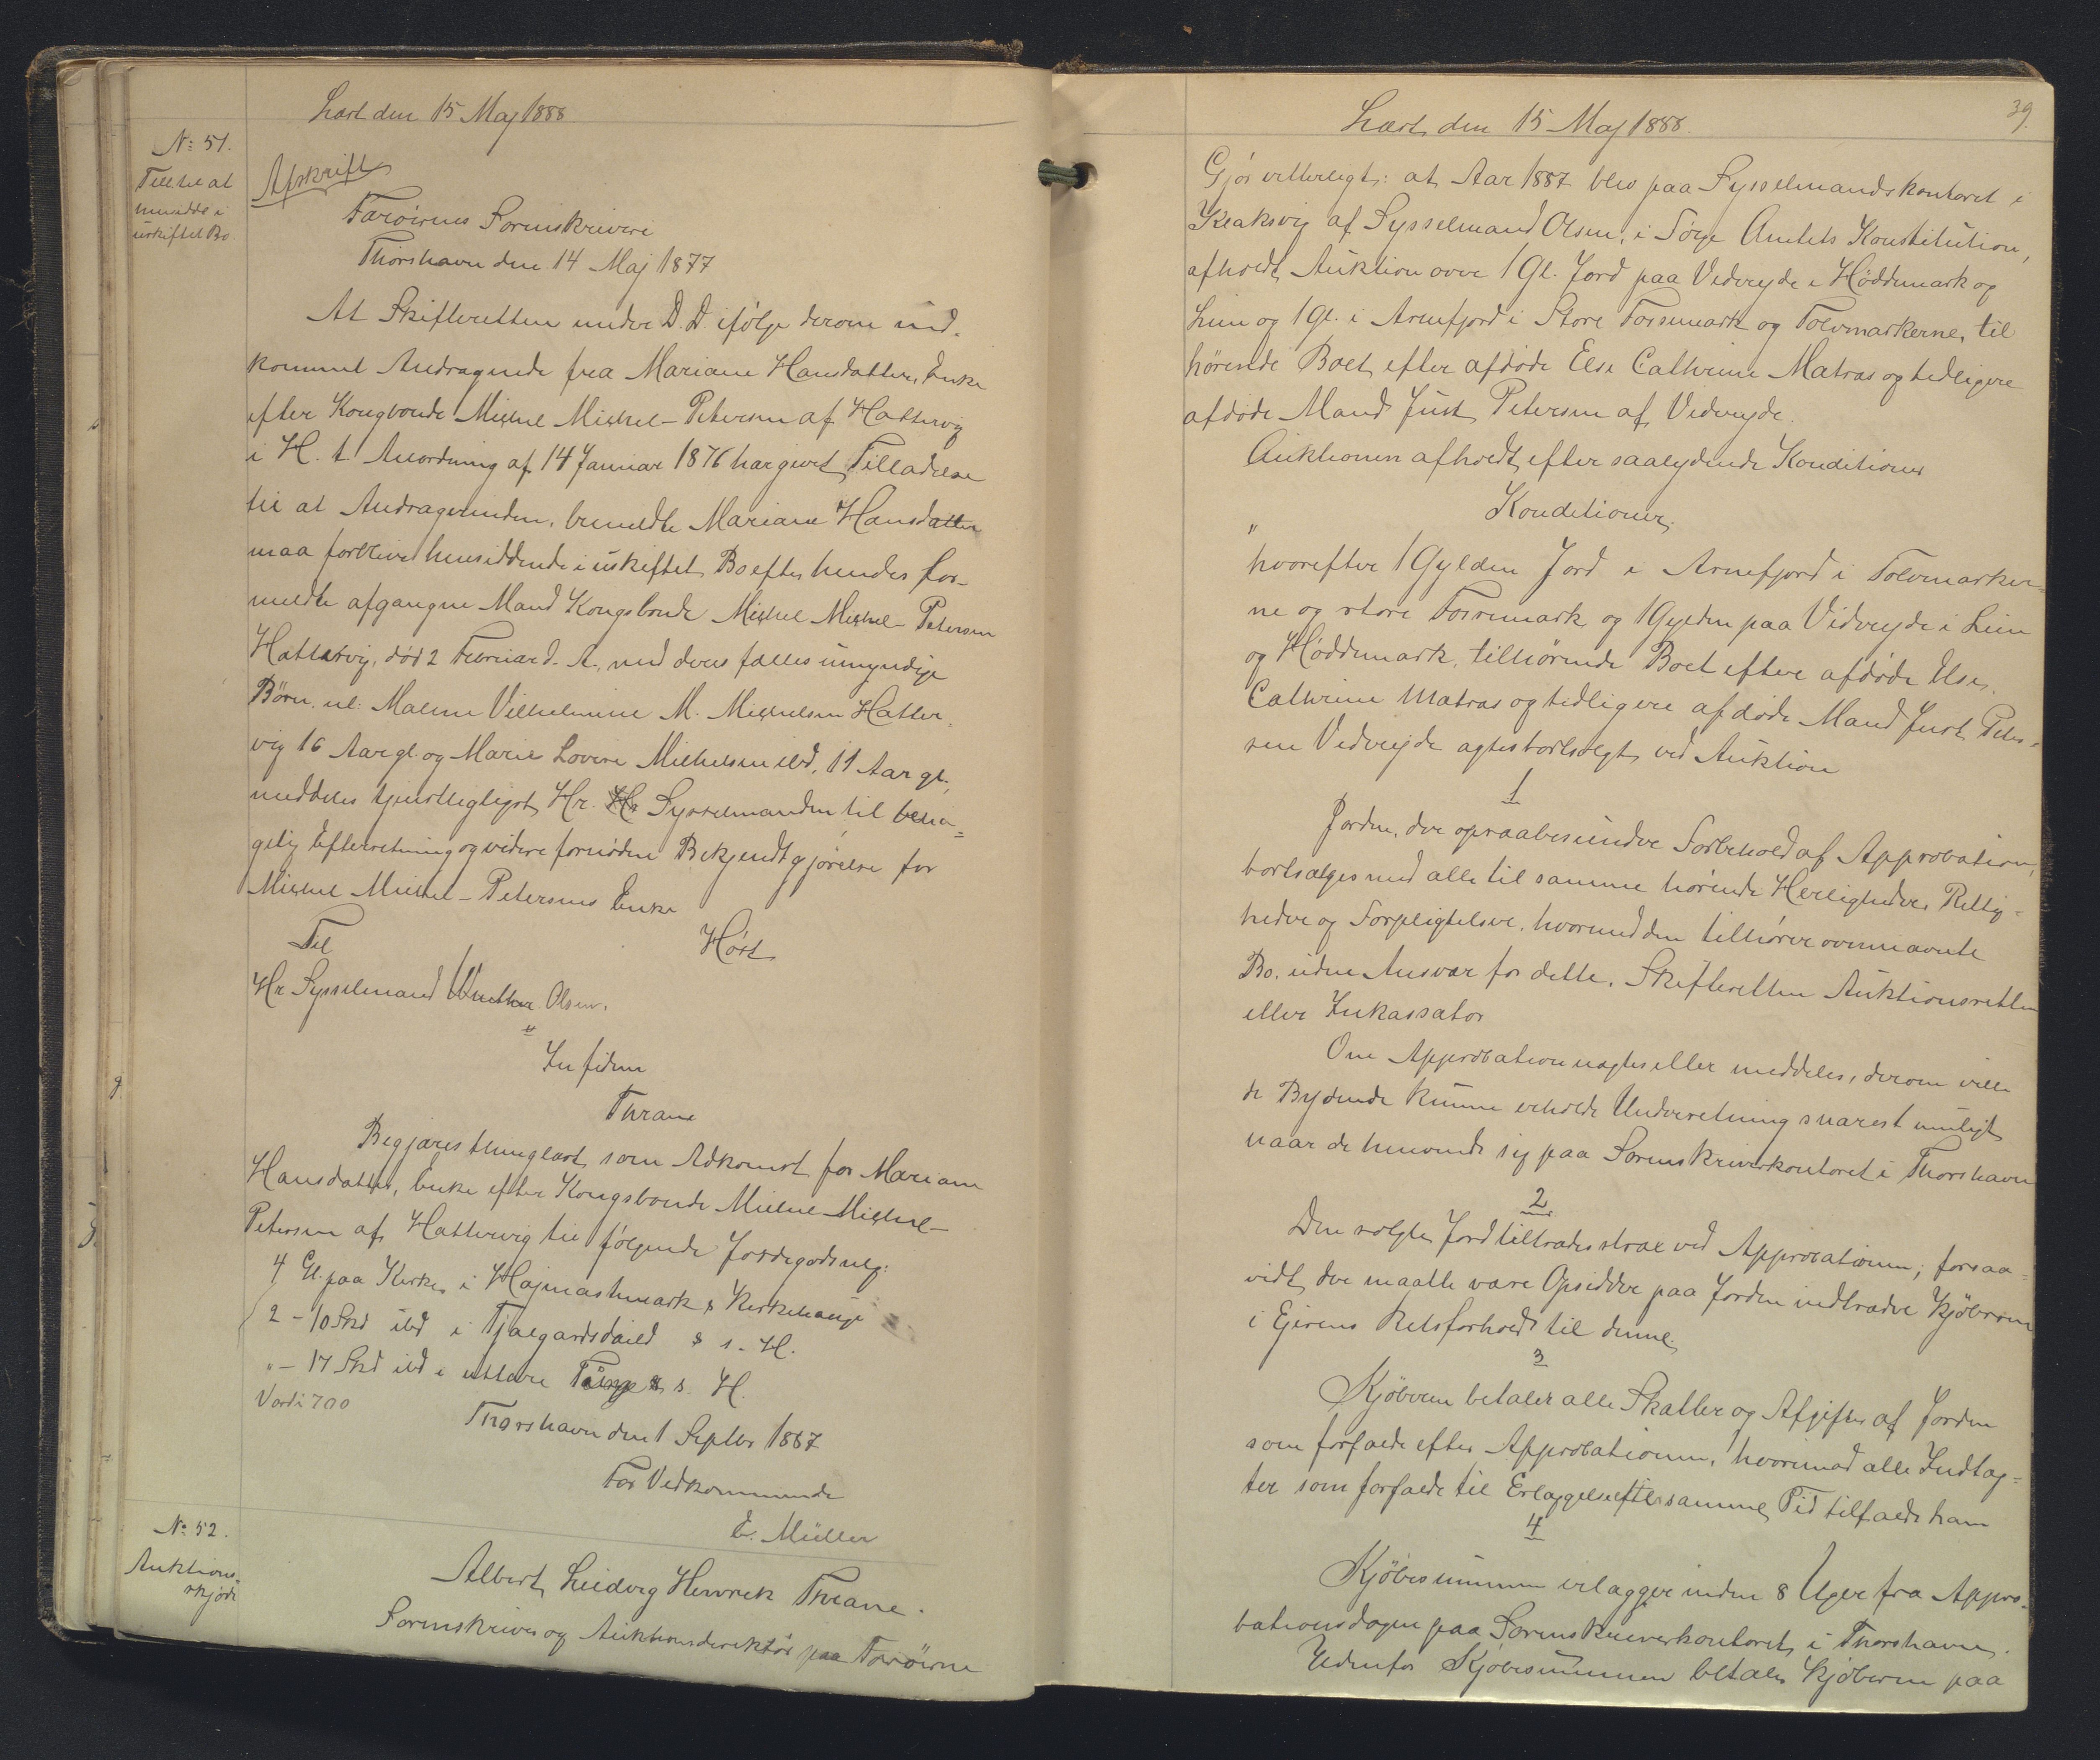 Læst den 15 Maj 1888
No 51.
Till. til at
hensidde i
uskiftet Bo
Afskrift
Færöernes Sorenskriveri
Thorshavn den 14 Maj 1877
At Skifteretten under D.D. ifölge derom ind-
kommet Andragende fra Mariane Hansdatter, Enke
efter Kongsbonde Michel Michel-Petersen af Hattervig
i H. t. Anordning af 14 Januar 1876 har givet Tilladelse
til at Andragerinden, bemeldte Mariane Hansdatter
maa forblive hensiddende i uskiftet Bo efter hendes for-
meldte afgangne Mand Kongsbonde Michel Michel-Petersen
Hattervig, död 2 Februar d. A., med deres fælles umyndige
Börn, nl: Malene Vilhelmine M. Michelsen Hatter-
vig 16 Aar gl. og Marie Lovise Michelsen ibd, 11 Aar gl.,
meddeles tjenstligligst Hr. Hr Sysselmanden til beha-
gelig Efterretning og videre fornöden Bekjendtgjörelse for
Michel Michel-Petersens Enke
Höst
Til
Hr. Sysselmand Winther Olsen.
"
In fidem
Thrane
Begjæres thinglæst som Adkomst for Mariane
Hansdatter, Enke efter Kongsbonde Michel Michel-
Petersen af Hattervig til fölgende Jordegods nlg:
4 Gl. paa Kirke i Hajmastmark & Kirkehauje
2 - 10 Skd ibd i s. H.
" - 17 Skd ibd i uttare s. H.
Værdi 700
Thorshavn den 1 Septbr 1887
For Vedkommende
E. Müller
No 52.
Auktions-
skjöde
Albert Ludvig Henrek Thrane.
Sorenskriver og Auktionsdirektör paa Færöerne
39.
Læst den 15 Maj 1888.
Gjör vitterligt: at Aar 1887 blev paa Sysselmandskontoret i
Klaksvig af Sysselmand Olsen, i Fölge Amtets Konstitution,
afholdt Auktion over 1 Gl. Jord paa Viderejde i Höddemark og
Lim og 1 Gl. i Arnefjord i Store Fossmark og Tolvmarkerne, til
hörende Boet efter afdöde Else Cathrine Matras og tidligere
afdöde Mand Just Petersen af Viderejde.
Auktionen afholdt efter saalydende Konditioner
Konditioner.
"
hvorefter 1 Gylden Jord i Arnefjord i Tolvmarker-
ne og store Fossmark og 1 Gylden paa Viderejde i Lim
og Höddemark, tilhörende Boet efter afdöde Else
Cathrine Matras og tidligere afdöde Mand Just Peter-
sen Viderejde agtes bortsolgt ved Auktion
1
Jorden, der opraabes under Forbehold af Approbation,
bortsælges med alle til samme hörende Herligheder, Rettig-
heder og Forpligtelser, hvormed den tilhörer ovennævnte
Bo, uden Ansvar for dette, Skifteretten Auktionsretten
eller Inkassator
Om Approbation nægtes eller meddeles, derom ville
de Bydende kunne erholde Underretning snarest muligt
naar de henvende sig paa Sorenskriverkontoret i Thorshavn
2
Den solgte Jord tiltrædes strax ved Approbationen; forsaa-
vidt der maatte være Opsidder paa Jorden indtræder Kjöberen
i Ejerens Retsforhold til denne.
3
Kjöberen betaler alle Skatter og Afgifter af Jorden
som forfalde efter Approbationen, hvorimod alle Indtæg-
ter som forfalde til Erlæggelse efter samme Tid tilfalde ham
4
Kjöbesummen erlægges inden 8 Uger fra Appro-
bationsdagen paa Sorenskriverkontoret i Thorshavn.
Udenfor Kjöbesummen betaler Kjöberen paa